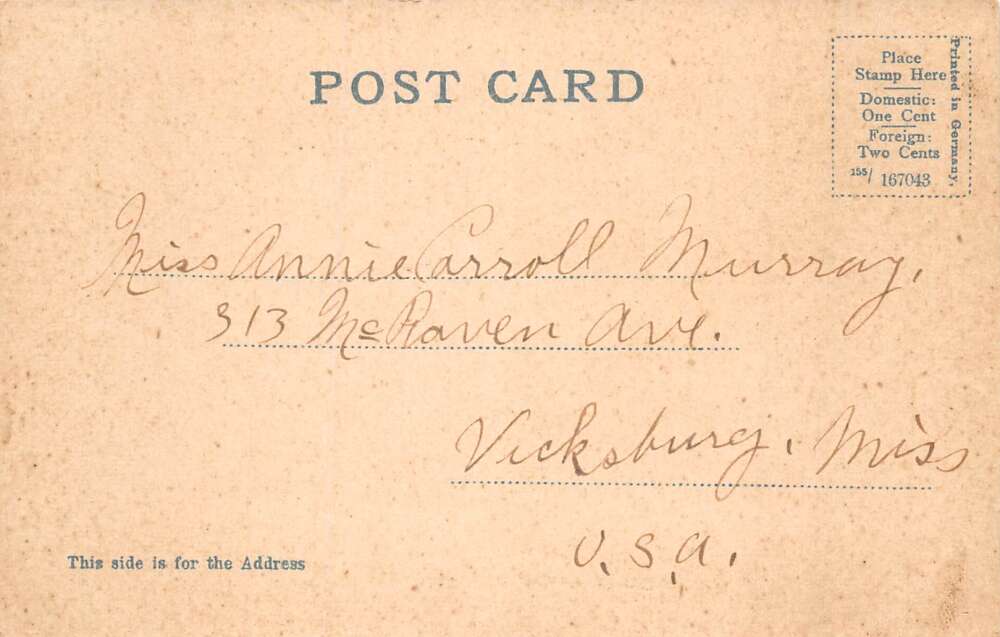 POST CARD
Place
Stamp Here
Domestic:
One Cent
Foreign:
Two Cents
155/ 167043
Printed in Germany.
Miss Annie Carroll Murray,
313 McRaven Ave.
Vicksburg, Miss
U.S.A.
This side is for the Address